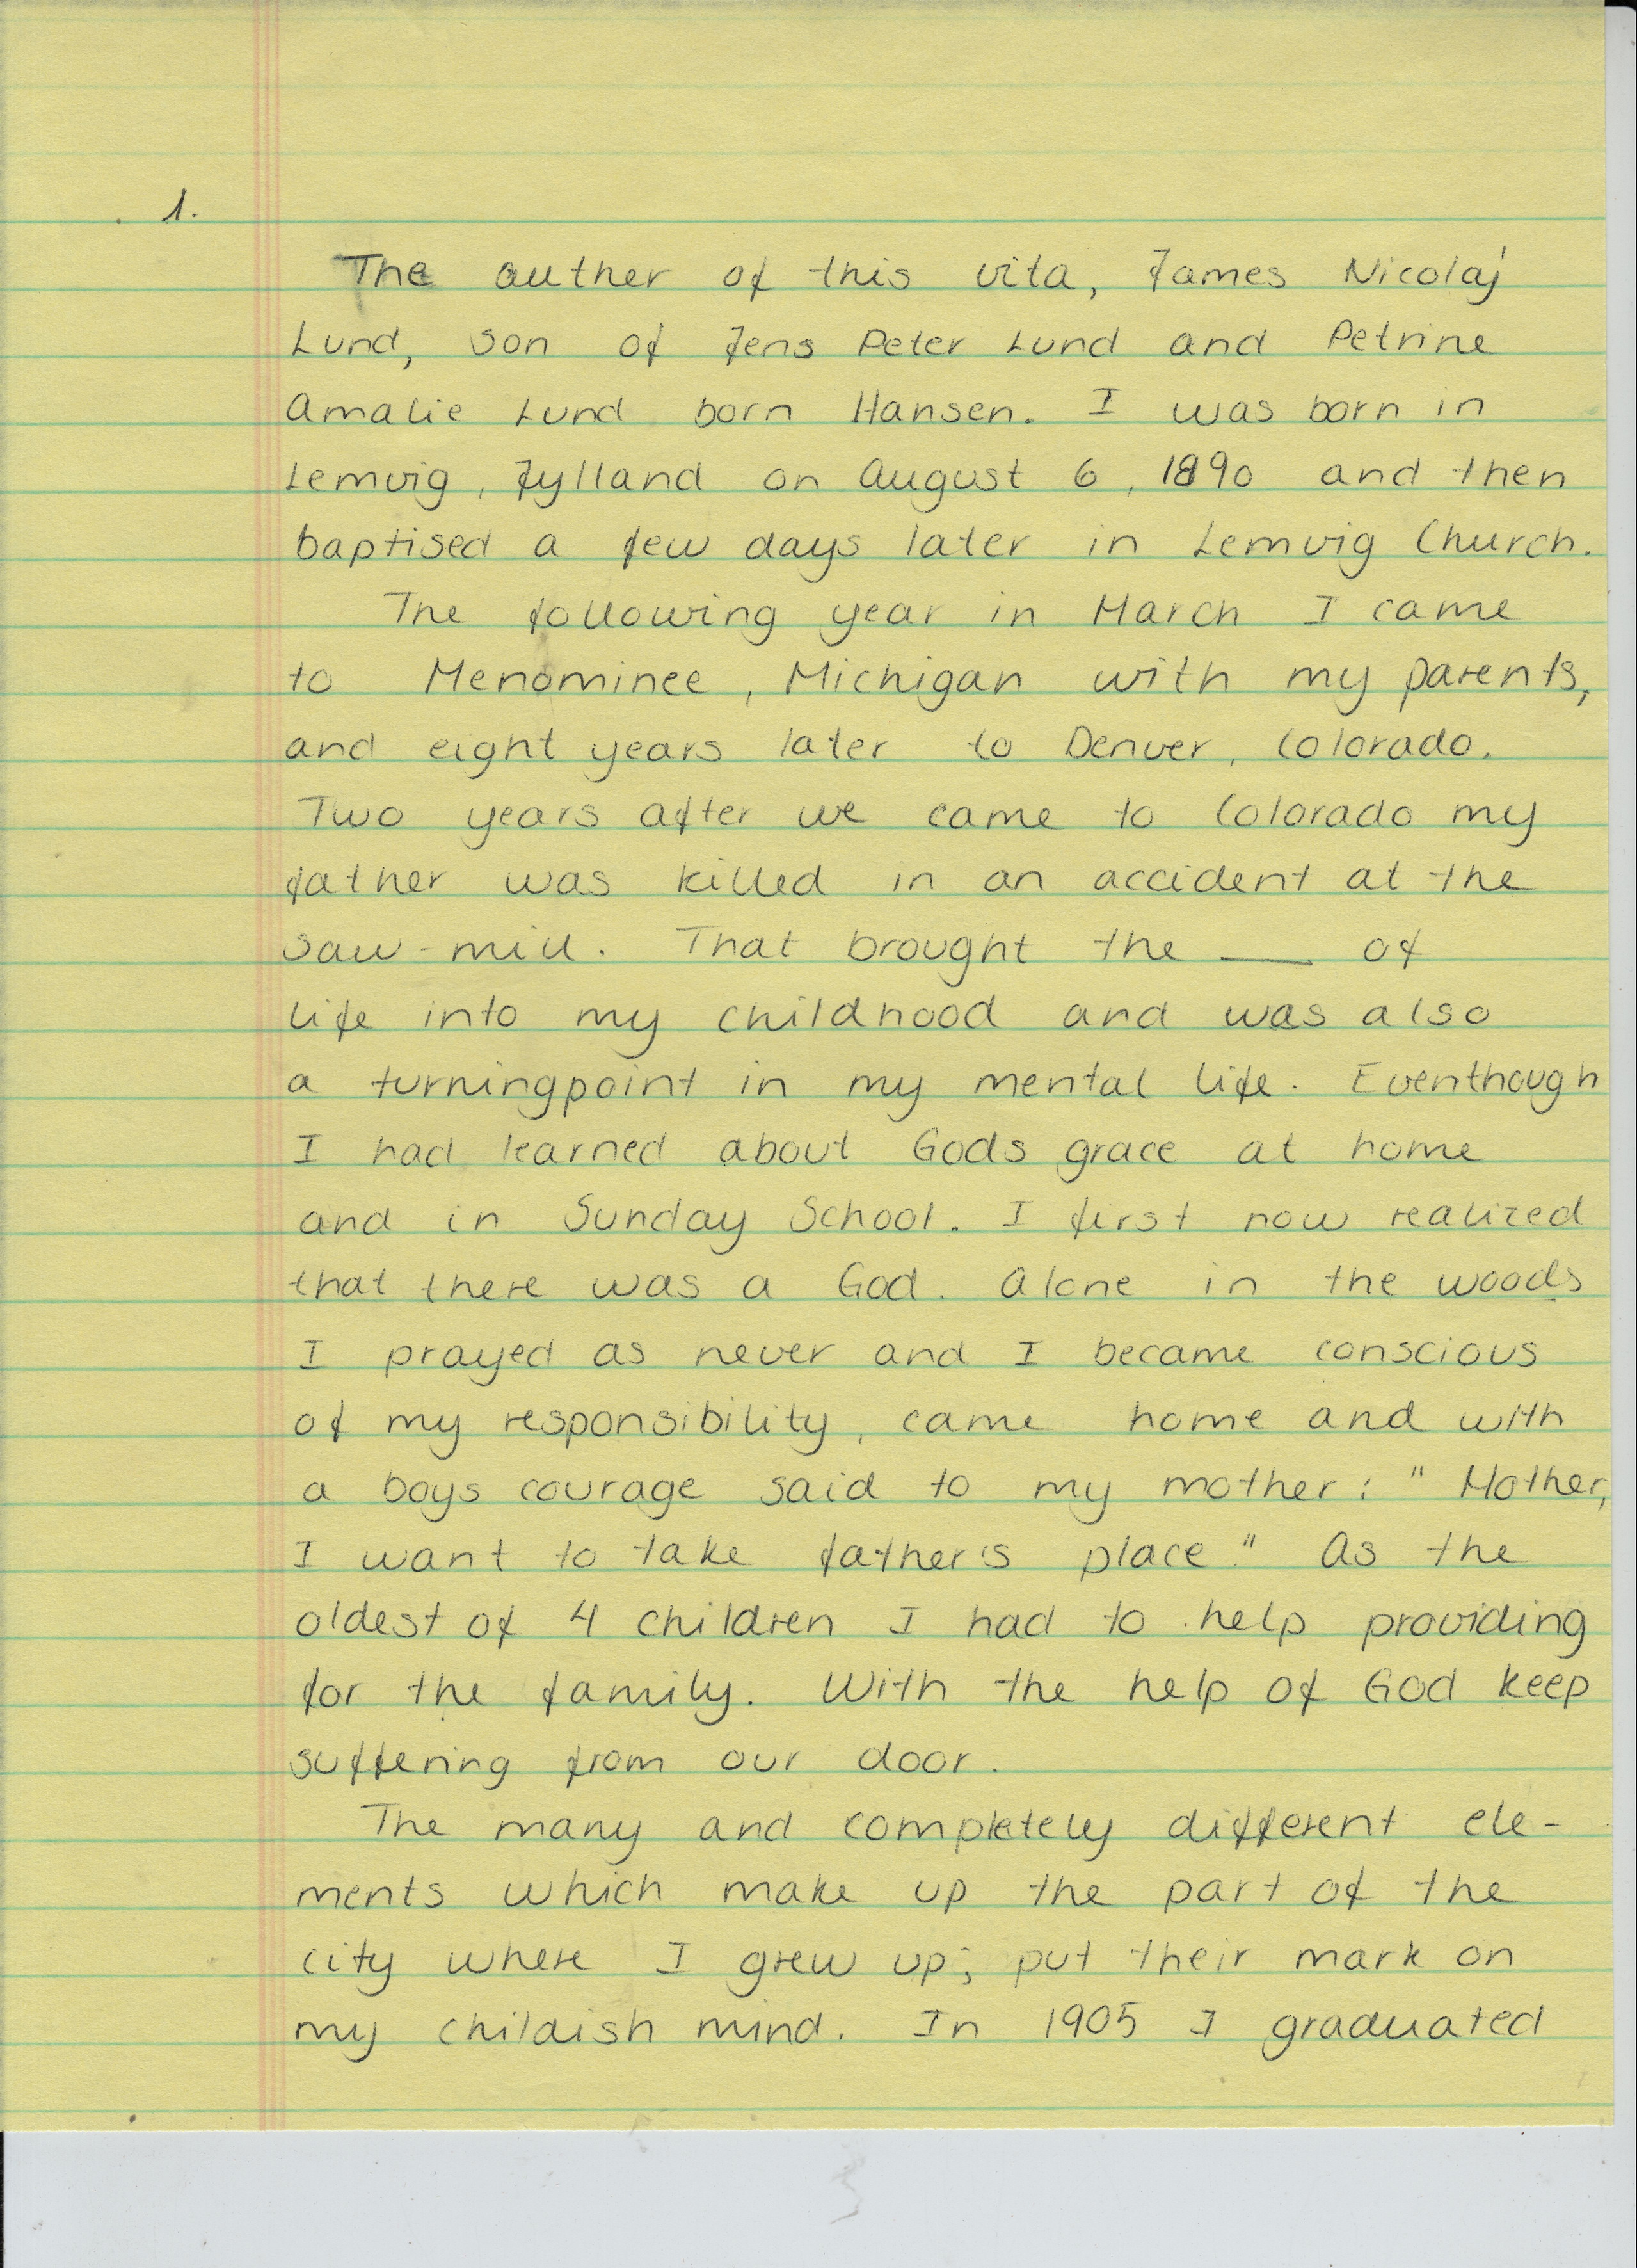 1.
The auther of this vita, James Nicolaj
Lund, son of Jens Peter Lund and Petrine
Amalie Lund born Hansen. I was born in
Lemvig, Jylland on August 6, 1890 and then
baptised a few days later in Lemvig Church.
The following year in March I came
to Menominee, Michigan with my parents,
and eight years later to Denver, Colorado.
Two years after we came to Colorado my
father was killed in an accident at the
saw-mill. That brought the ___ of
life into my childhood and was also
a turningpoint in my mental life. Eventhough
I had learned about Gods grace at home
and in Sunday School. I first now realized
that there was a God. Alone in the woods
I prayed as never and I became conscious
of my responsibility, came home and with
a boys courage said to my mother: "Mother,
I want to take father's place." As the
oldest of 4 children I had to help providing
for the family. With the help of God keep
suffering from our door.
The many and completely different ele-
ments which make up the part of the
city where I grew up; put their mark on
my childish mind. In 1905 I graduated